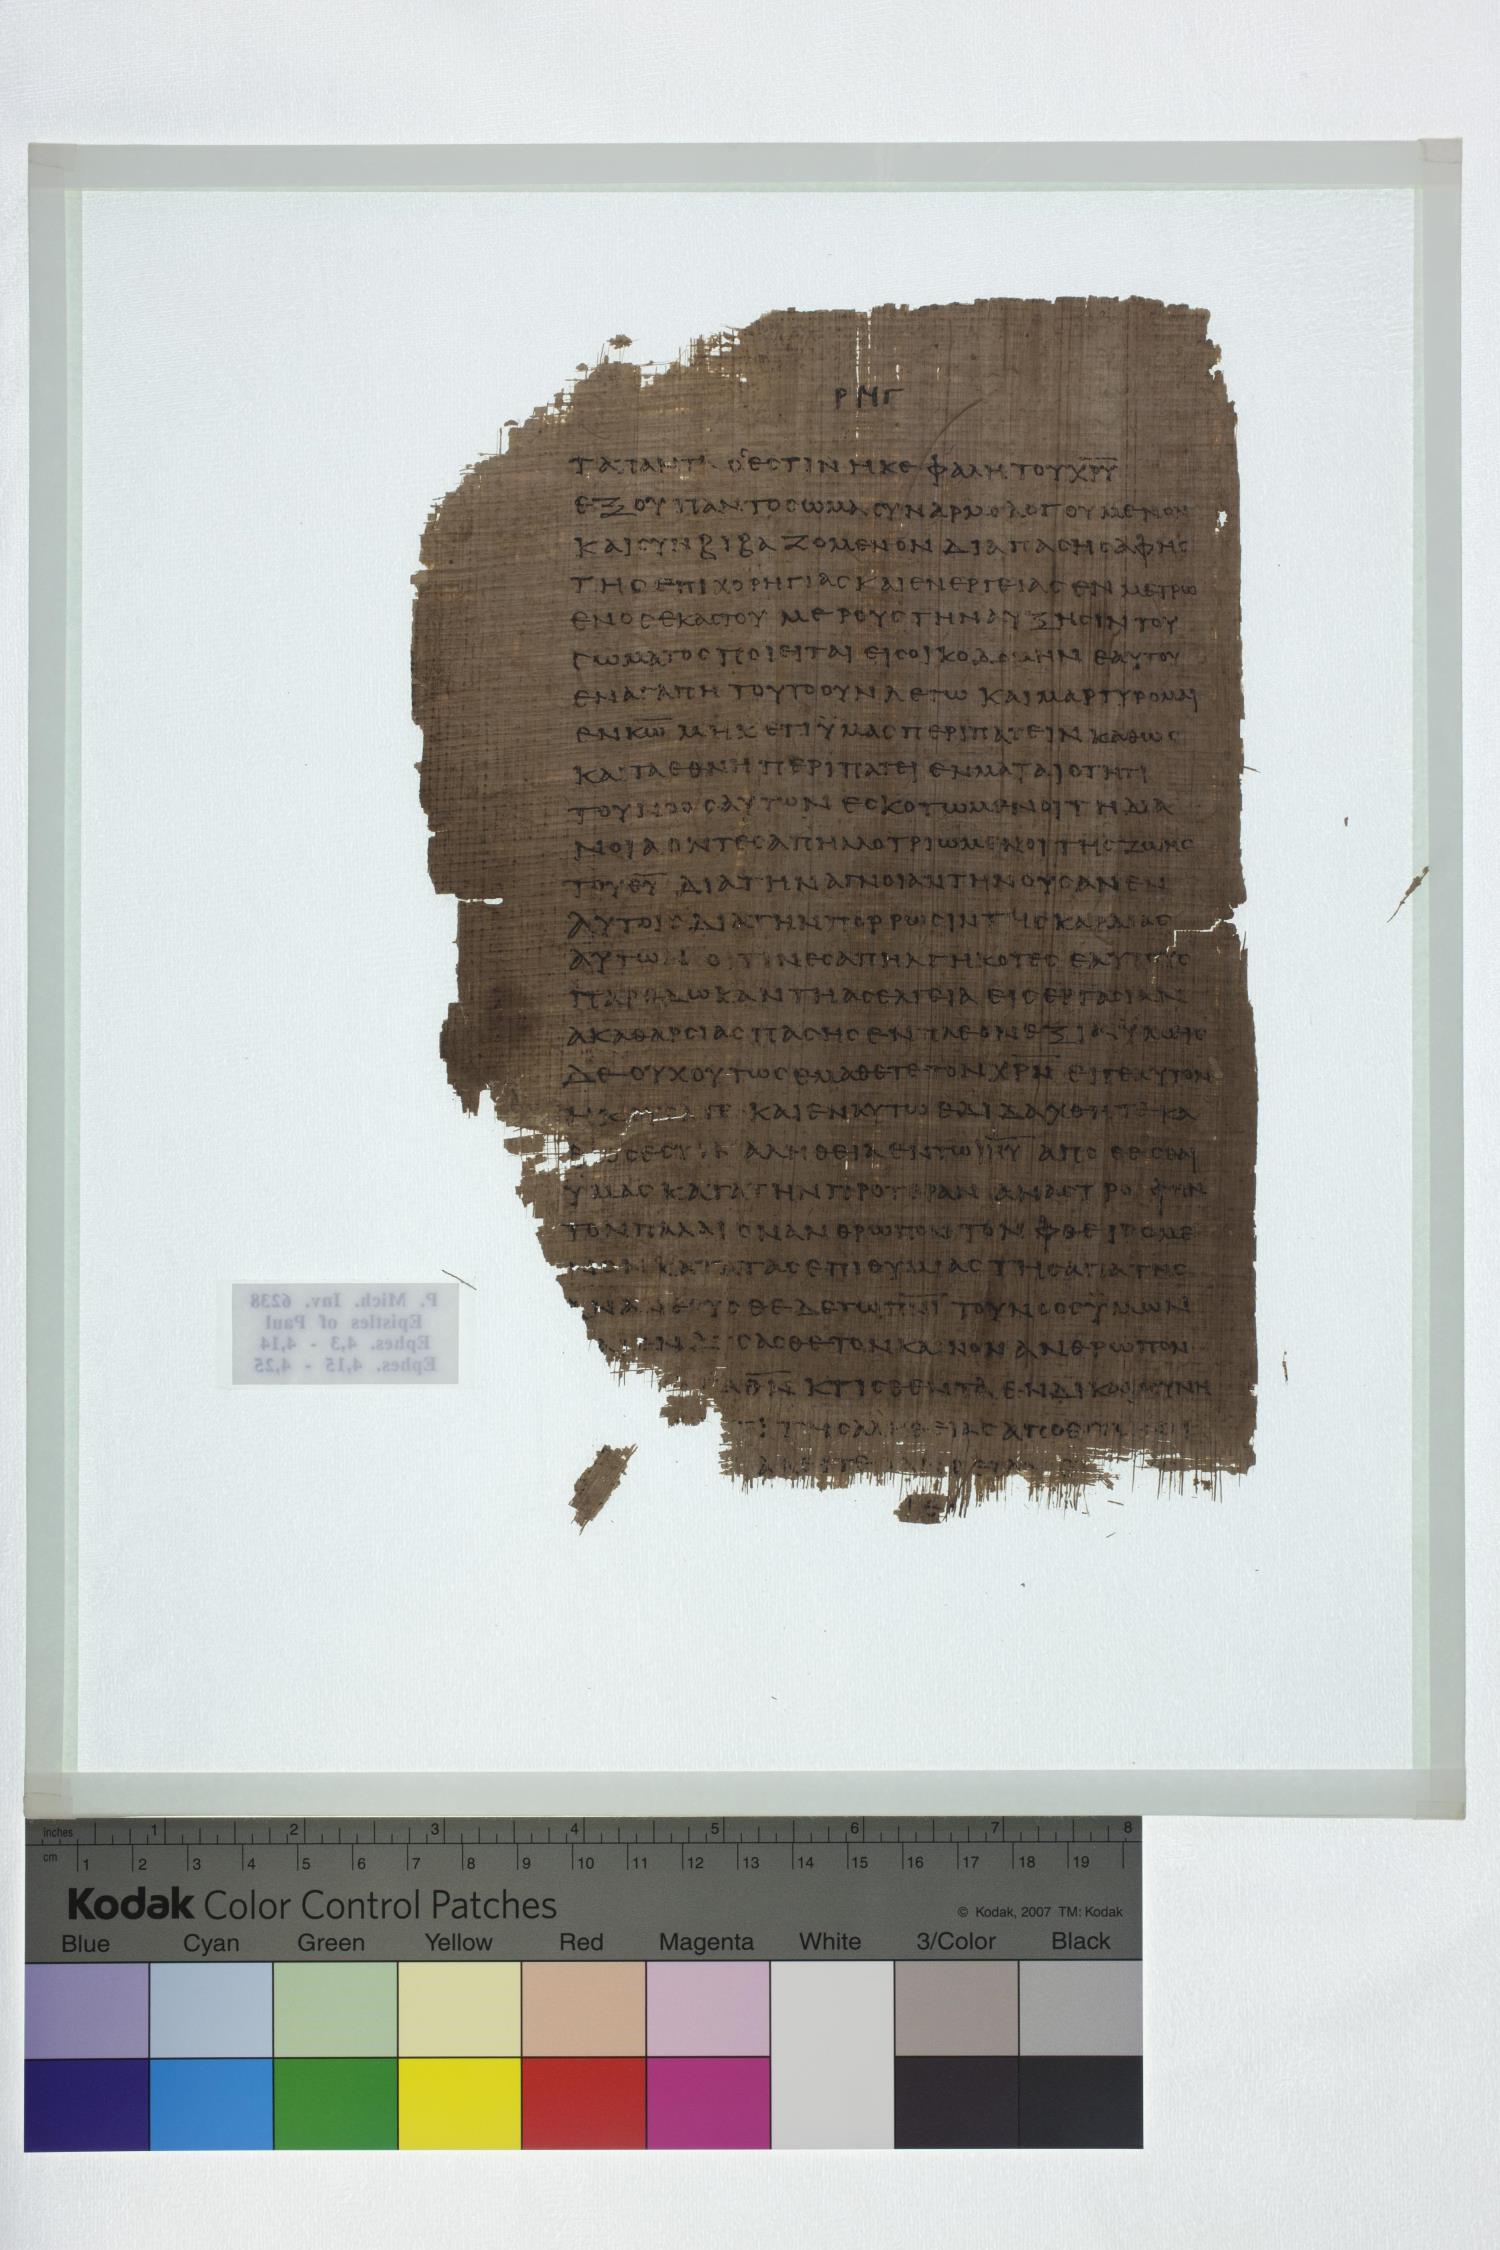 ΡΜΓ
ΤΑ ΠΑΝΤΑ Ο ΕΣΤΙΝ Η ΚΕΦΑΛΗ ΤΟΥ ΧΡΥ
ΕΞ ΟΥ ΠΑΝ ΤΟ ΣΩΜΑ ΣΥΝΑΡΜΟΛΟΓΟΥΜΕΝΟΝ
ΚΑΙ ΣΥΝΒΙΒΑΖΟΜΕΝΟΝ ΔΙΑ ΠΑΣΗΣ ΑΦΗΣ
ΤΗΣ ΕΠΙΧΟΡΗΓΙΑΣ ΚΑΙ ΕΝΕΡΓΕΙΑΣ ΕΝ ΜΕΤΡΩ
ΕΝΟΣ ΕΚΑΣΤΟΥ ΜΕΡΟΥΣ ΤΗΝ ΑΥΞΗΣΙΝ ΤΟΥ
ΣΩΜΑΤΟΣ ΠΟΙΕΙΤΑΙ ΕΙΣ ΟΙΚΟΔΟΜΗΝ ΕΑΥΤΟΥ
ΕΝ ΑΓΑΠΗ ΤΟΥΤΟ ΟΥΝ ΛΕΓΩ ΚΑΙ ΜΑΡΤΥΡΟΜΑΙ
ΕΝ ΚΩ ΜΗΚΕΤΙ ΫΜΑΣ ΠΕΡΙΠΑΤΕΙΝ ΚΑΘΩΣ
ΚΑΙ ΤΑ ΕΘΝΗ ΠΕΡΙΠΑΤΕΙ ΕΝ ΜΑΤΑΙΟΤΗΤΙ
ΤΟΥ ΝΟΟΣ ΑΥΤΩΝ ΕΣΚΟΤΩΜΕΝΟΙ ΤΗ ΔΙΑ
ΝΟΙΑ ΟΝΤΕΣ ΑΠΗΛΛΟΤΡΙΩΜΕΝΟΙ ΤΗΣ ΖΩΗΣ
ΤΟΥ ΘΥ ΔΙΑ ΤΗΝ ΑΓΝΟΙΑΝ ΤΗΝ ΟΥΣΑΝ ΕΝ
ΑΥΤΟΙΣ ΔΙΑ ΤΗΝ ΠΟΡΡΩΣΙΝ ΤΗΣ ΚΑΡΔΙΑΣ
ΑΥΤΩΝ ΟΙΤΙΝΕΣ ΑΠΗΛΓΗΚΟΤΕΣ ΕΑΥΤΟΥΣ
ΠΑΡΕΔΩΚΑΝ ΤΗ ΑΣΕΛΓΕΙΑ ΕΙΣ ΕΡΓΑΣΙΑΝ
ΑΚΑΘΑΡΣΙΑΣ ΠΑΣΗΣ ΕΝ ΠΛΕΟΝΕΞΙΑ ΫΜΕΙΣ
ΔΕ ΟΥΧ ΟΥΤΩΣ ΕΜΑΘΕΤΕ ΤΟΝ ΧΡΝ ΕΙΓΕ ΑΥΤΟΝ
ΗΚΟΥΣΑΤΕ ΚΑΙ ΕΝ ΑΥΤΩ ΕΔΙΔΑΧΘΗΤΕ ΚΑ
ΘΩΣ ΕΣΤΙΝ ΑΛΗΘΕΙΑ ΕΝ ΤΩ ΙΗΥ ΑΠΟΘΕΣΘΑΙ
ΫΜΑΣ ΚΑΤΑ ΤΗΝ ΠΡΟΤΕΡΑΝ ΑΝΑΣΤΡΟΦΗΝ
ΤΟΝ ΠΑΛΑΙΟΝ ΑΝΘΡΩΠΟΝ ΤΟΝ ΦΘΕΙΡΟΜΕ
ΝΟΝ ΚΑΤΑ ΤΑΣ ΕΠΙΘΥΜΙΑΣ ΤΗΣ ΑΠΑΤΗΣ
ΑΝΑΝΕΟΥΣΘΕ ΔΕ ΤΩ ΠΝΙ ΤΟΥ ΝΟΟΣ ΫΜΩΝ
ΣΑΣΘΕ ΤΟΝ ΚΑΙΝΟΝ ΑΝΘΡΩΠΟΝ
ΘΝ ΚΤΙΣΘΕΝΤΑ ΕΝ ΔΙΚΑΙΟΣΥΝΗ
ΤΗΣ ΑΛΗΘΕΙΑΣ
P. Mich. Inv. 6238
Epistles of Paul
Ephes. 4,3 - 4,14
Ephes. 4,15 - 4,25
inches 1 2 3 4 5 6 7 8
cm 1 2 3 4 5 6 7 8 9 10 11 12 13 14 15 16 17 18 19
Kodak Color Control Patches © Kodak, 2007 TM: Kodak
Blue Cyan Green Yellow Red Magenta White 3/Color Black